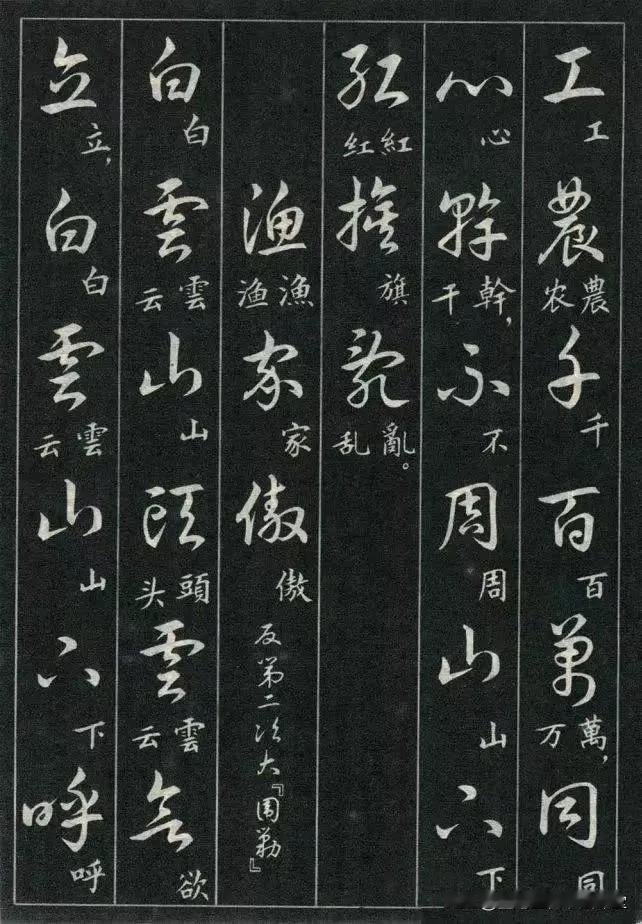 工農千百萬同
工農农千百萬,万同
心幹不周山下
心幹,干不周山下
紅旗亂
紅红旗亂。乱
漁家傲
漁渔家傲
反第二次大『围勦』
白雲山頭雲欲
白雲云山頭头雲云欲
立白雲山下呼
立,白雲云山下呼